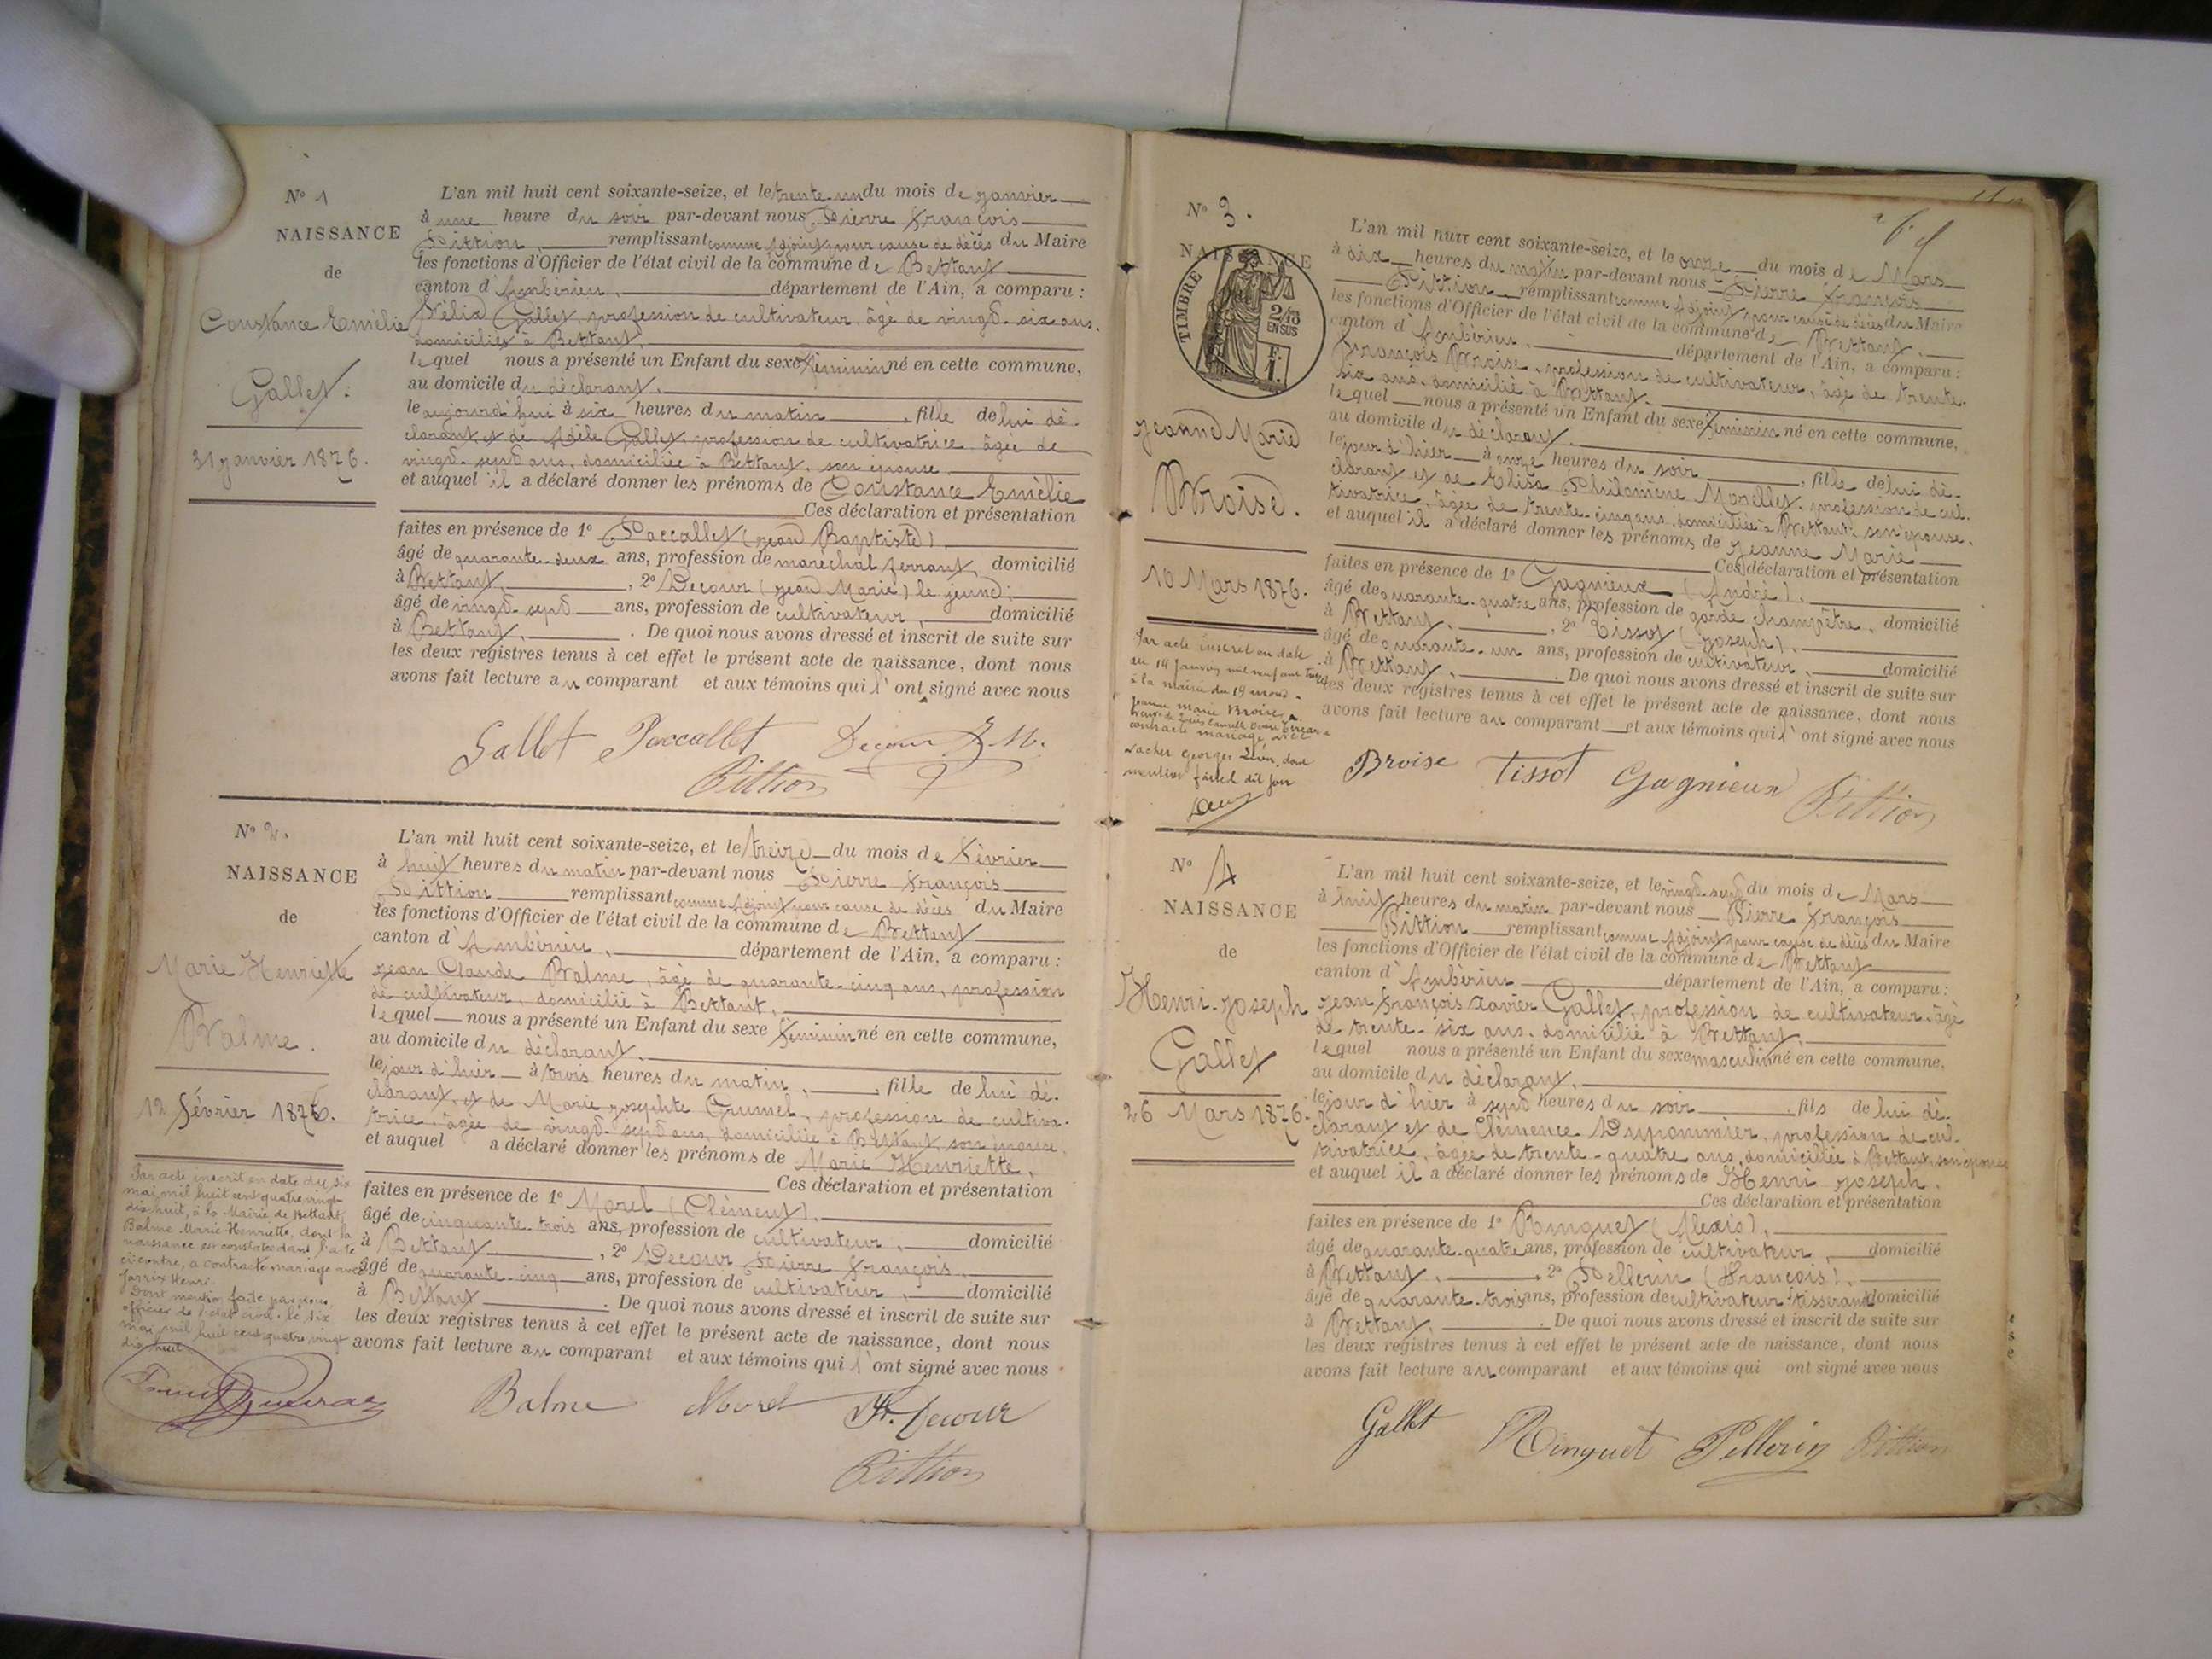 N° 1
NAISSANCE
de
Constance Emélie
Gallet.
31 janvier 1876.
L'an mil huit cent soixante-seize, et le trente-un du mois de janvier
à une heure du soir par-devant nous Pierre François
Pittion, remplissant comme Adjoint pour cause de décès du Maire
les fonctions d'Officier de l'état civil de la commune de Bettant
canton d'Ambérieu, département de l'Ain, a comparu :
Félix Gallet, profession de cultivateur, âgé de vingt-six ans,
domicilié à Bettant,
lequel nous a présenté un Enfant du sexe féminin né en cette commune,
au domicile du déclarant,
le aujourd'hui à six heures du matin, fille de lui dé-
clarant et de Adèle Gallet, profession de cultivatrice, âgée de
vingt-sept ans, domiciliée à Bettant, son épouse
et auquel il a déclaré donner les prénoms de Constance Emélie
Ces déclaration et présentation
faites en présence de 1° Paccallet (Jean Baptiste)
âgé de quarante-deux ans, profession de maréchal ferrant, domicilié
à Bettant, , 2° Decour (Jean Marie) le jeune,
âgé de vingt-sept ans, profession de cultivateur, domicilié
à Bettant, . De quoi nous avons dressé et inscrit de suite sur
les deux registres tenus à cet effet le présent acte de naissance, dont nous
avons fait lecture au comparant et aux témoins qui l'ont signé avec nous
Gallet Paccallet Decour J. M.
Pittion
N° 2.
NAISSANCE
de
Marie Henriette
Balme.
12 février 1876.
Par acte inscrit en date du six
mai mil huit cent quatre vingt
dix huit, à la Mairie de Bettant,
Balme Marie Henriette, dont la
naissance est constatée dans l'acte
ci contre, a contracté mariage avec
Henri.
Dont mention faite par nous,
officier de l'état civil, le six
mai mil huit cent quatre vingt
dix huit
L'an mil huit cent soixante-seize, et le treize du mois de février
à huit heures du matin par-devant nous Pierre François
Pittion remplissant comme Adjoint pour cause de décès du Maire
les fonctions d'Officier de l'état civil de la commune de Bettant
canton d'Ambérieu, département de l'Ain, a comparu :
Jean Claude Balme, âgé de quarante-cinq ans, profession
de cultivateur, domicilié à Bettant,
lequel nous a présenté un Enfant du sexe féminin né en cette commune,
au domicile du déclarant,
le jour d'hier à trois heures du matin, , fille de lui dé-
clarant, et de Marie Josephte Grumel, profession de cultiva-
trice, âgée de vingt-sept ans, domiciliée à Bettant, son épouse,
et auquel a déclaré donner les prénoms de Marie Henriette,
Ces déclaration et présentation
faites en présence de 1° Morel (Clément),
âgé de cinquante-trois ans, profession de cultivateur, domicilié
à Bettant , 2° Decour Pierre François,
âgé de quarante-cinq ans, profession de cultivateur, domicilié
à Bettant . De quoi nous avons dressé et inscrit de suite sur
les deux registres tenus à cet effet le présent acte de naissance, dont nous
avons fait lecture au comparant et aux témoins qui l'ont signé avec nous
Balme Morel Decour
Pittion
N° 3.
NAISSANCE
TIMBRE
2/10
EN SUS
F.
1.
Jeanne Marie
Broise.
10 Mars 1876.
Par acte inscrit en date
du 14 janvier mil neuf cent
à la mairie du 19
Jeanne Marie Broise,
contracté mariage avec
Vacher Georges Léon, dont
mention faite dit jour
L'an mil huit cent soixante-seize, et le onze du mois de Mars
à dix heures du matin par-devant nous Pierre François
Pittion, remplissant comme Adjoint pour cause de décès du Maire
les fonctions d'Officier de l'état civil de la commune de Bettant,
canton d'Ambérieu, département de l'Ain, a comparu :
François Broise, profession de cultivateur, âgé de trente-
six ans, domicilié à Bettant,
lequel nous a présenté un Enfant du sexe féminin né en cette commune,
au domicile du déclarant,
le jour d'hier à onze heures du soir , fille de lui dé-
clarant et de Elisa Philomène Morellet, profession de cul-
tivatrice, âgée de trente-cinq ans, domiciliée à Bettant, son épouse,
et auquel il a déclaré donner les prénoms de Jeanne Marie
Ces déclaration et présentation
faites en présence de 1° Gagnieux (André),
âgé de quarante-quatre ans, profession de garde champêtre, domicilié
à Bettant, , 2° Tissot (Joseph),
âgé de quarante-un ans, profession de cultivateur, domicilié
à Bettant, . De quoi nous avons dressé et inscrit de suite sur
les deux registres tenus à cet effet le présent acte de naissance, dont nous
avons fait lecture au comparant et aux témoins qui l'ont signé avec nous
Broise Tissot Gagnieux Pittion
N° 4
NAISSANCE
de
Henri-Joseph
Gallet
26 Mars 1876.
L'an mil huit cent soixante-seize, et le vingt-sept du mois de Mars
à huit heures du matin par-devant nous Pierre François
Pittion remplissant comme Adjoint pour cause de décès du Maire
les fonctions d'Officier de l'état civil de la commune de Bettant
canton d'Ambérieu département de l'Ain, a comparu :
Jean François Xavier Gallet, profession de cultivateur, âgé
de trente-six ans, domicilié à Bettant,
lequel nous a présenté un Enfant du sexe masculin né en cette commune,
au domicile du déclarant,
le jour d'hier à sept heures du soir , fils de lui dé-
clarant et de Clémence Dupommier, profession de cul-
tivatrice, âgée de trente-quatre ans, domiciliée à Bettant son épouse
et auquel il a déclaré donner les prénoms de Henri Joseph,
Ces déclaration et présentation
faites en présence de 1° Ringuet (Alexis),
âgé de quarante-quatre ans, profession de cultivateur, domicilié
à Bettant, , 2° Pellerin (François),
âgé de quarante-trois ans, profession de cultivateur-tisserand domicilié
à Bettant, . De quoi nous avons dressé et inscrit de suite sur
les deux registres tenus à cet effet le présent acte de naissance, dont nous
avons fait lecture au comparant et aux témoins qui ont signé avec nous
Gallet Ringuet Pellerin Pittion